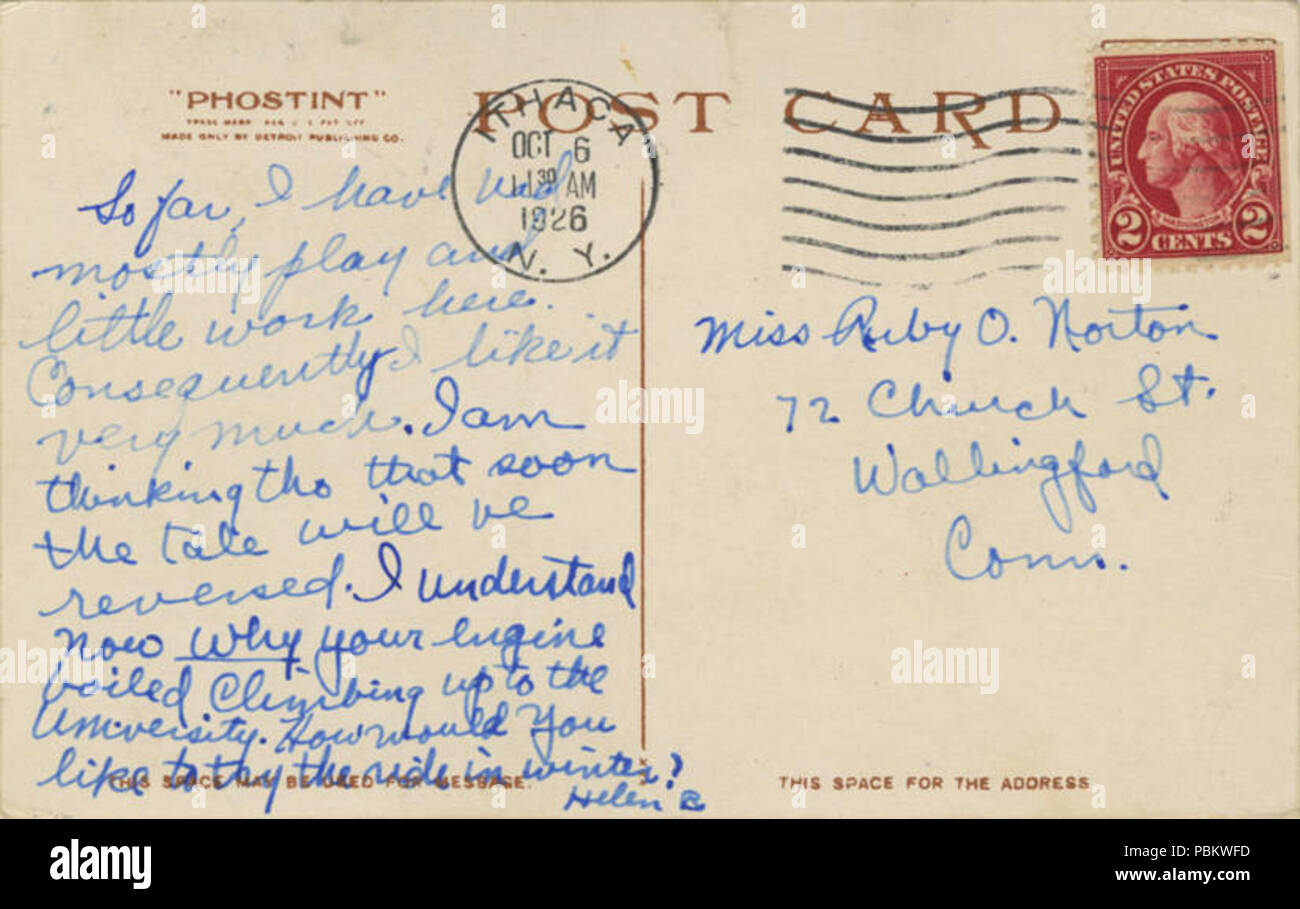 "PHOSTINT"
TRADE MARK REG U S PAT OFF
MADE ONLY BY DETROIT PUBLISHING CO.
POST CARD
ITHACA
OCT 6
11 30 AM
1926
N. Y.
UNITED STATES POSTAGE
WASHINGTON
2 CENTS 2
So far, I have had
mostly play and
little work here.
Consequently I like it
very much. I am
thinking tho that soon
the tale will be
reversed. I understand
now why your engine
boiled climbing up to the
University. How would you
like to try the ride in winter?
Helen B
Miss Ruby O. Norton
72 Church St.
Wallingford
Conn.
THIS SPACE MAY BE USED FOR MESSAGE.
THIS SPACE FOR THE ADDRESS
alamy
alamy stock photo
alamy
Image ID: PBKWFD
www.alamy.com